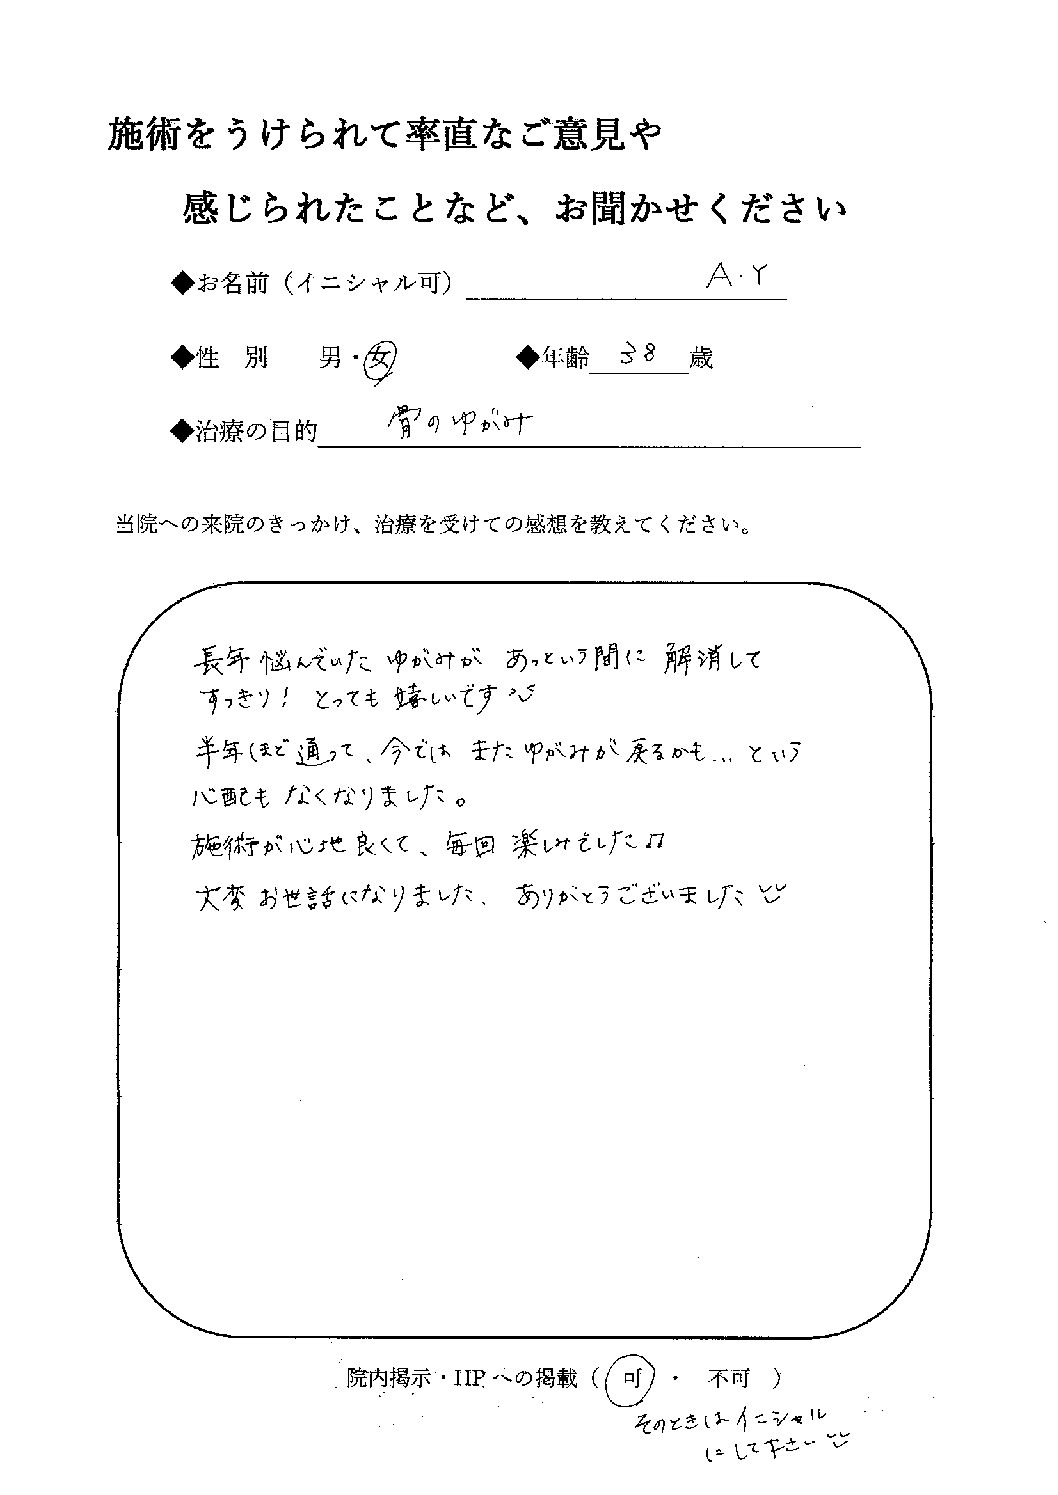 施術をうけられて率直なご意見や
感じられたことなど、お聞かせください
◆お名前（イニシャル可） A.Y
◆性　別　　男・女　　◆年齢 38 歳
◆治療の目的 骨のゆがみ
当院への来院のきっかけ、治療を受けての感想を教えてください。
長年悩んでいたゆがみが あっという間に 解消して
すっきり！ とっても嬉しいです
半年ほど通って、今では またゆがみが戻るかも... という
心配も なくなりました。
施術が心地良くて、毎回 楽しみでした♫
大変お世話になりました、ありがとうございました
院内掲示・HPへの掲載（ 可 ・ 不可 ）
そのときはイニシャル
にして下さい